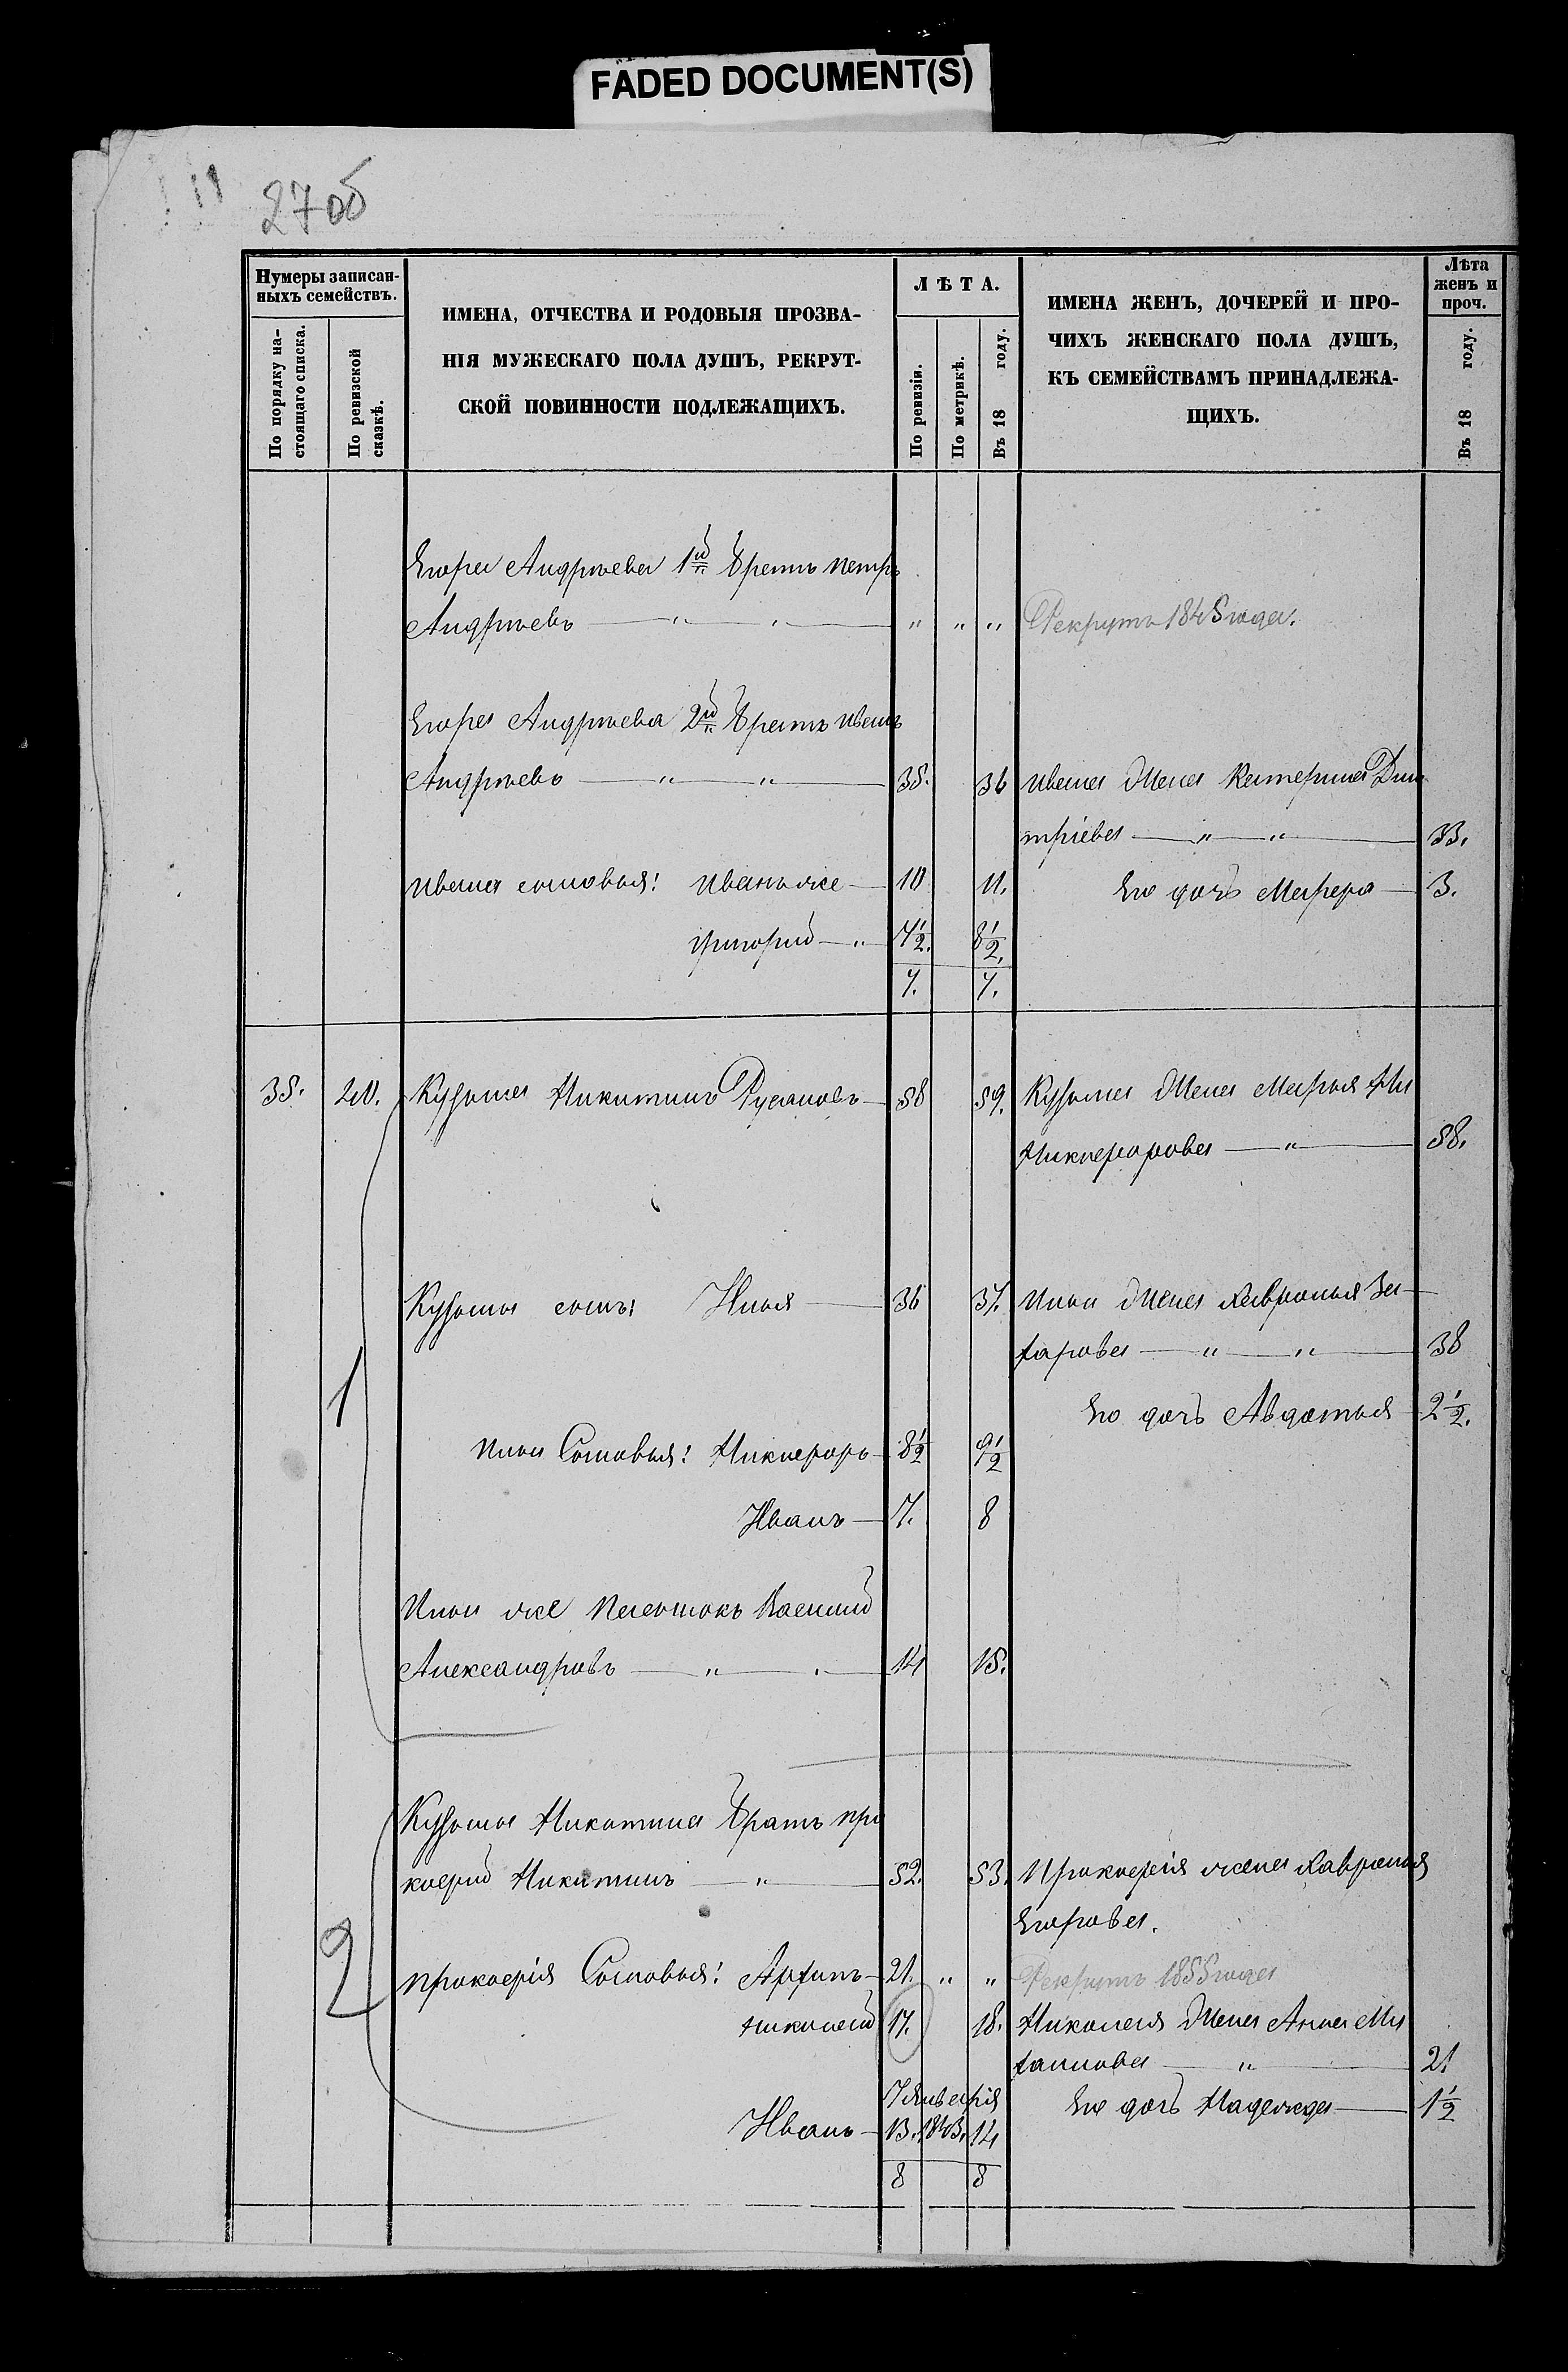 FADED DOCUMENT(S)
27об
Нумеры записан-
ныхъ семействъ.
По порядку на-
стоящаго списка.
По ревизской
сказкѣ.
ИМЕНА, ОТЧЕСТВА И РОДОВЫЯ ПРОЗВА-
НІЯ МУЖЕСКАГО ПОЛА ДУШЪ, РЕКРУТ-
СКОЙ ПОВИННОСТИ ПОДЛЕЖАЩИХЪ.
ЛѢТА.
По ревизіи.
По метрикѣ.
Въ 18 году.
ИМЕНА ЖЕНЪ, ДОЧЕРЕЙ И ПРО-
ЧИХЪ ЖЕНСКАГО ПОЛА ДУШЪ,
КЪ СЕМЕЙСТВАМЪ ПРИНАДЛЕЖА-
ЩИХЪ.
Лѣта
женъ и
проч.
Въ 18 году.
Егора Андрѣева 1й братъ петръ
Андрѣевъ — „ — „ — „ „ „ Рекрутъ 1845 года.
Егора Андрѣева 2й братъ иванъ
Андрѣевъ — „ — „ — 35. 36 ивана жена Катерина Дми
тріева — „ — „ — 33.
ивана сыновья: иванъ же — 10 11. Его дочь Марфа — 3.
григорий — „ 7½. 8½.
7. 7.
35. 20. Кузьма Никитинъ Русановъ — 58 59. Кузьмы жена Марья Ни
Никифорова — „ — 58.
Кузьмы сынъ: Илья — 36 37. Ильи жена Хавронья За-
харова — „ — „ — 38
Его дочь Авдотья — 2½.
1
Ильи Сыновья: Никифоръ — 8½ 9½
Иванъ — 7. 8
Ильи же Пасынокъ Василий
Александровъ — „ — 14 15.
Кузьмы Никитина братъ про
кофий Никитинъ — „ — 52. 53. Прокофія жена Хавронья
Егорова.
2
прокофія Сыновья: Архипъ — 21. „ „ Рекрутъ 1855 года
Николай 17. 18. Николая жена Анна Ми
хайлова — „ — 21
7 Января
Его дочь Надежда — 1½
Иванъ — 13. 1843. 14
8 8